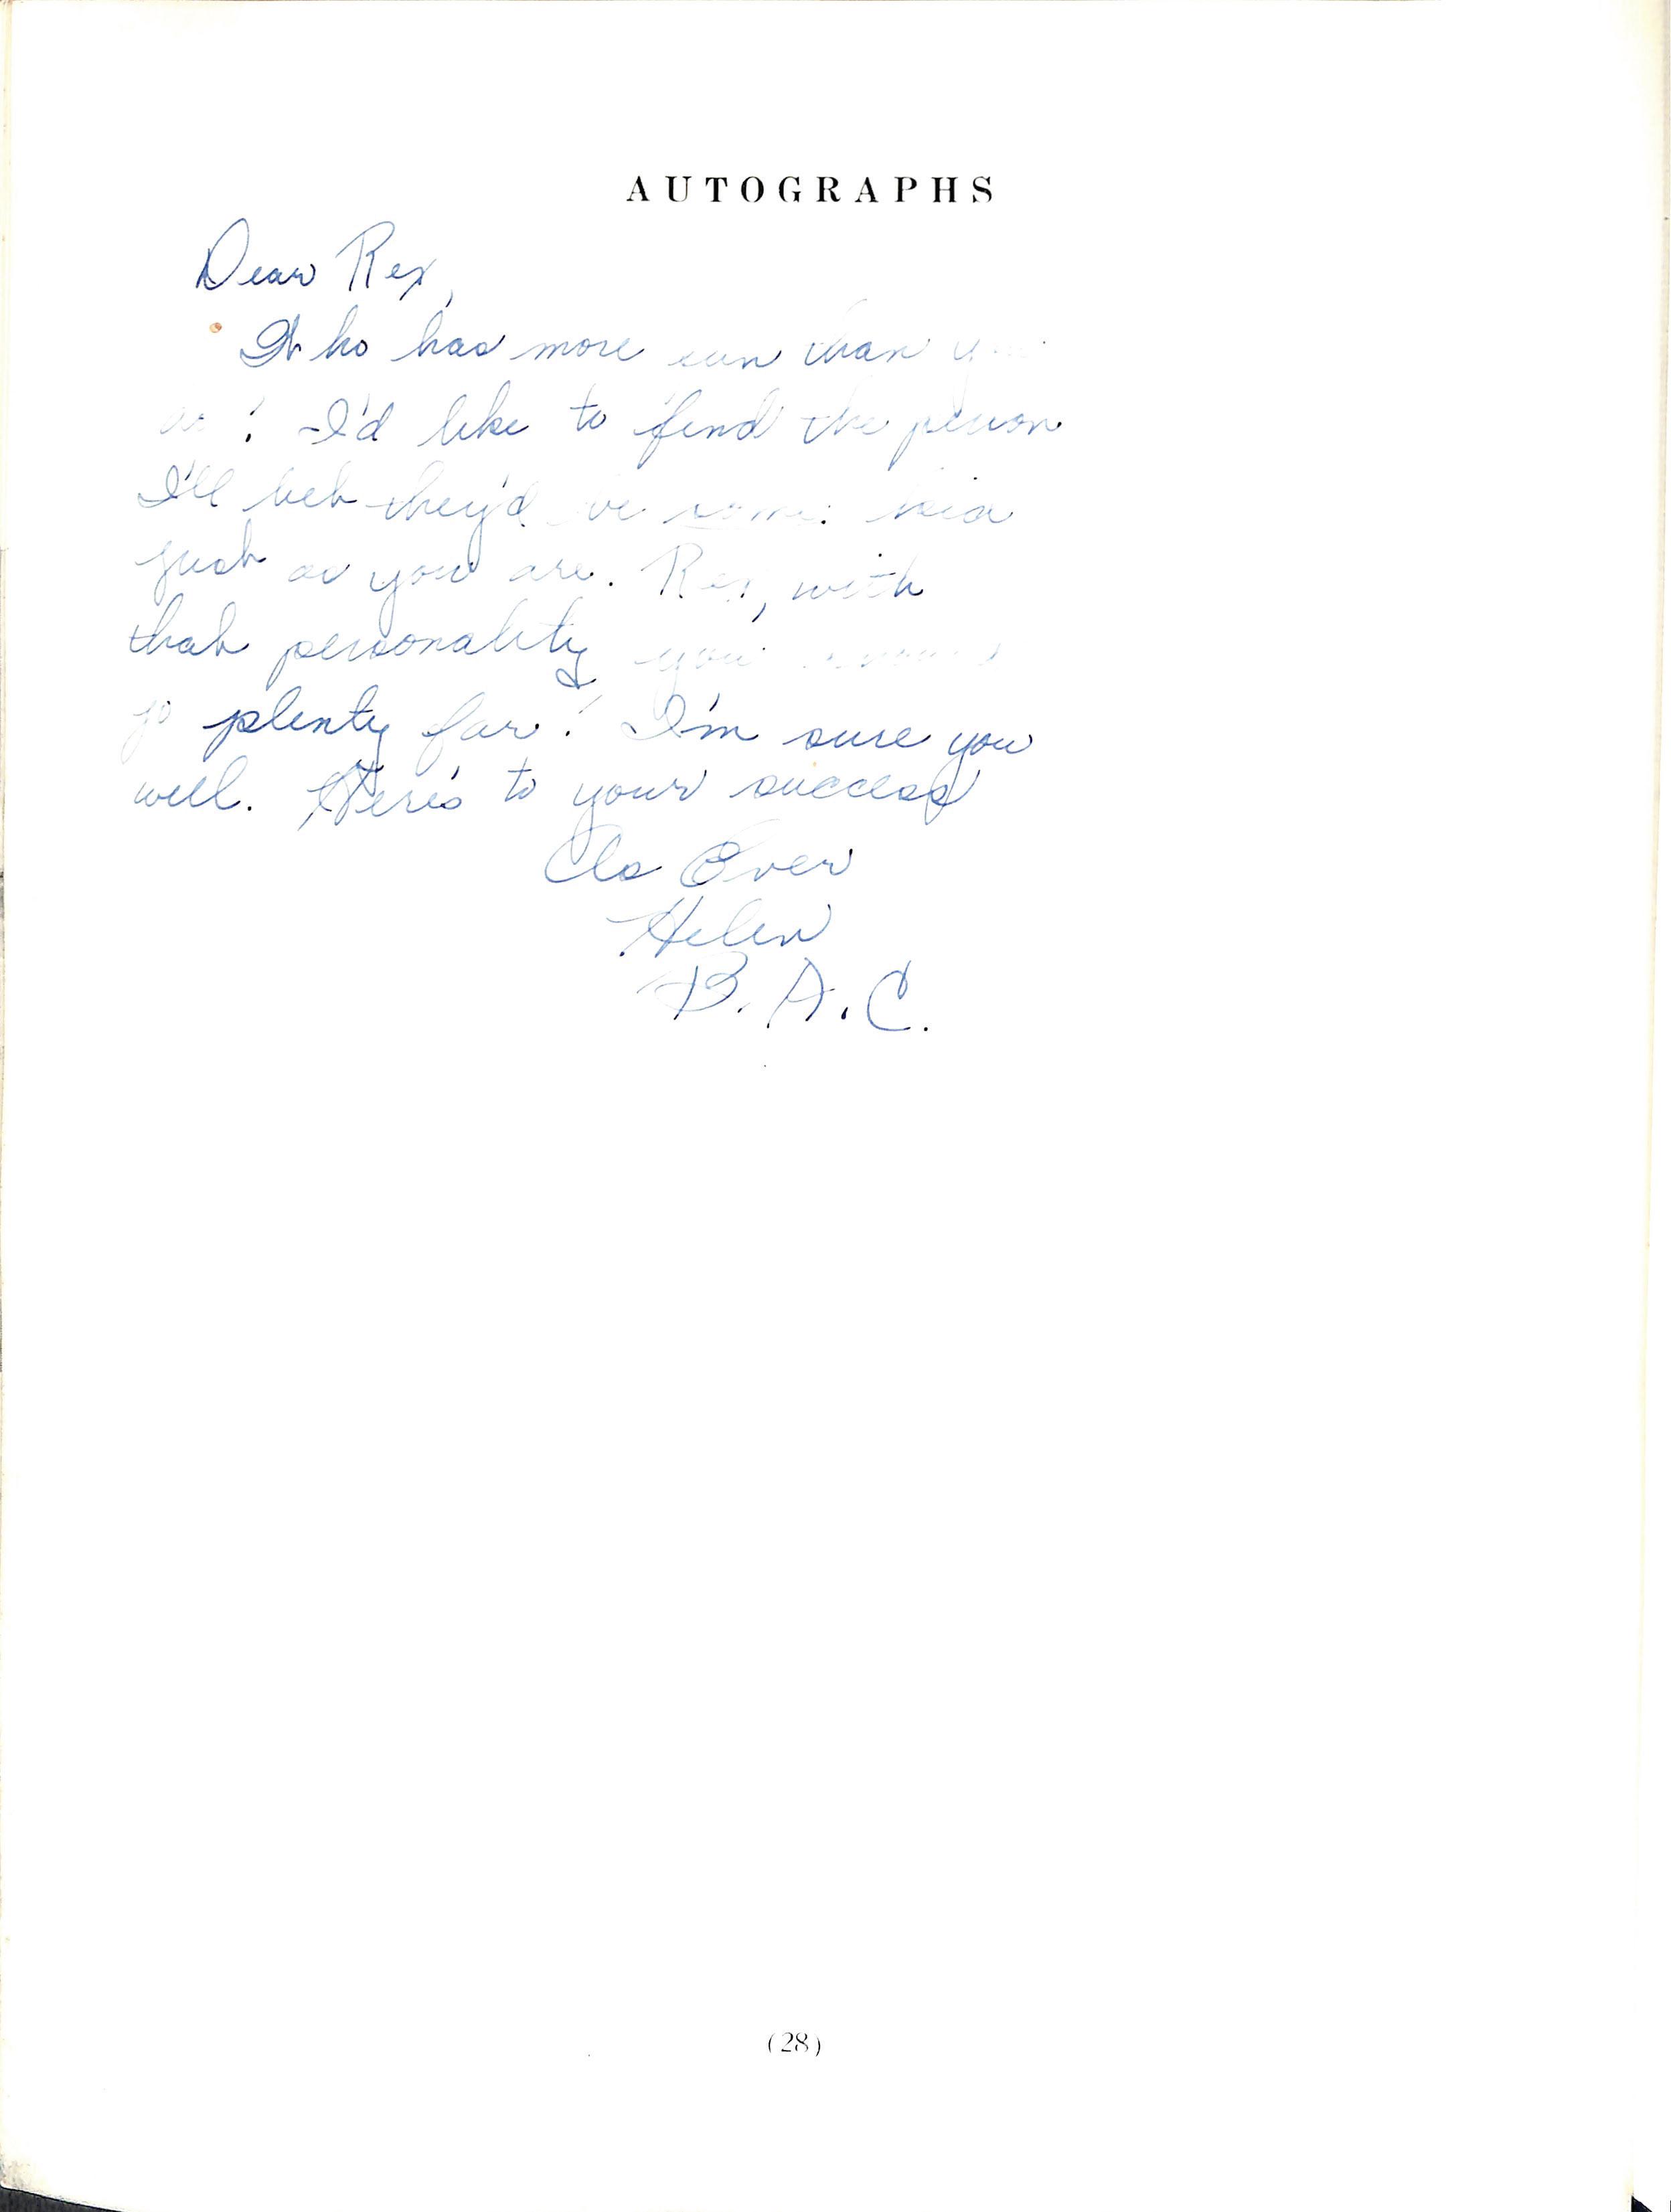 AUTOGRAPHS
Dear Rex,
Who has more fun than
! I'd like to find the person
I'll bet they'd be some
just as you are. Rex, with
that personality you
go plenty far! I'm sure you
will. Here's to your success
As Ever
Helen
B. A. C.
(28)